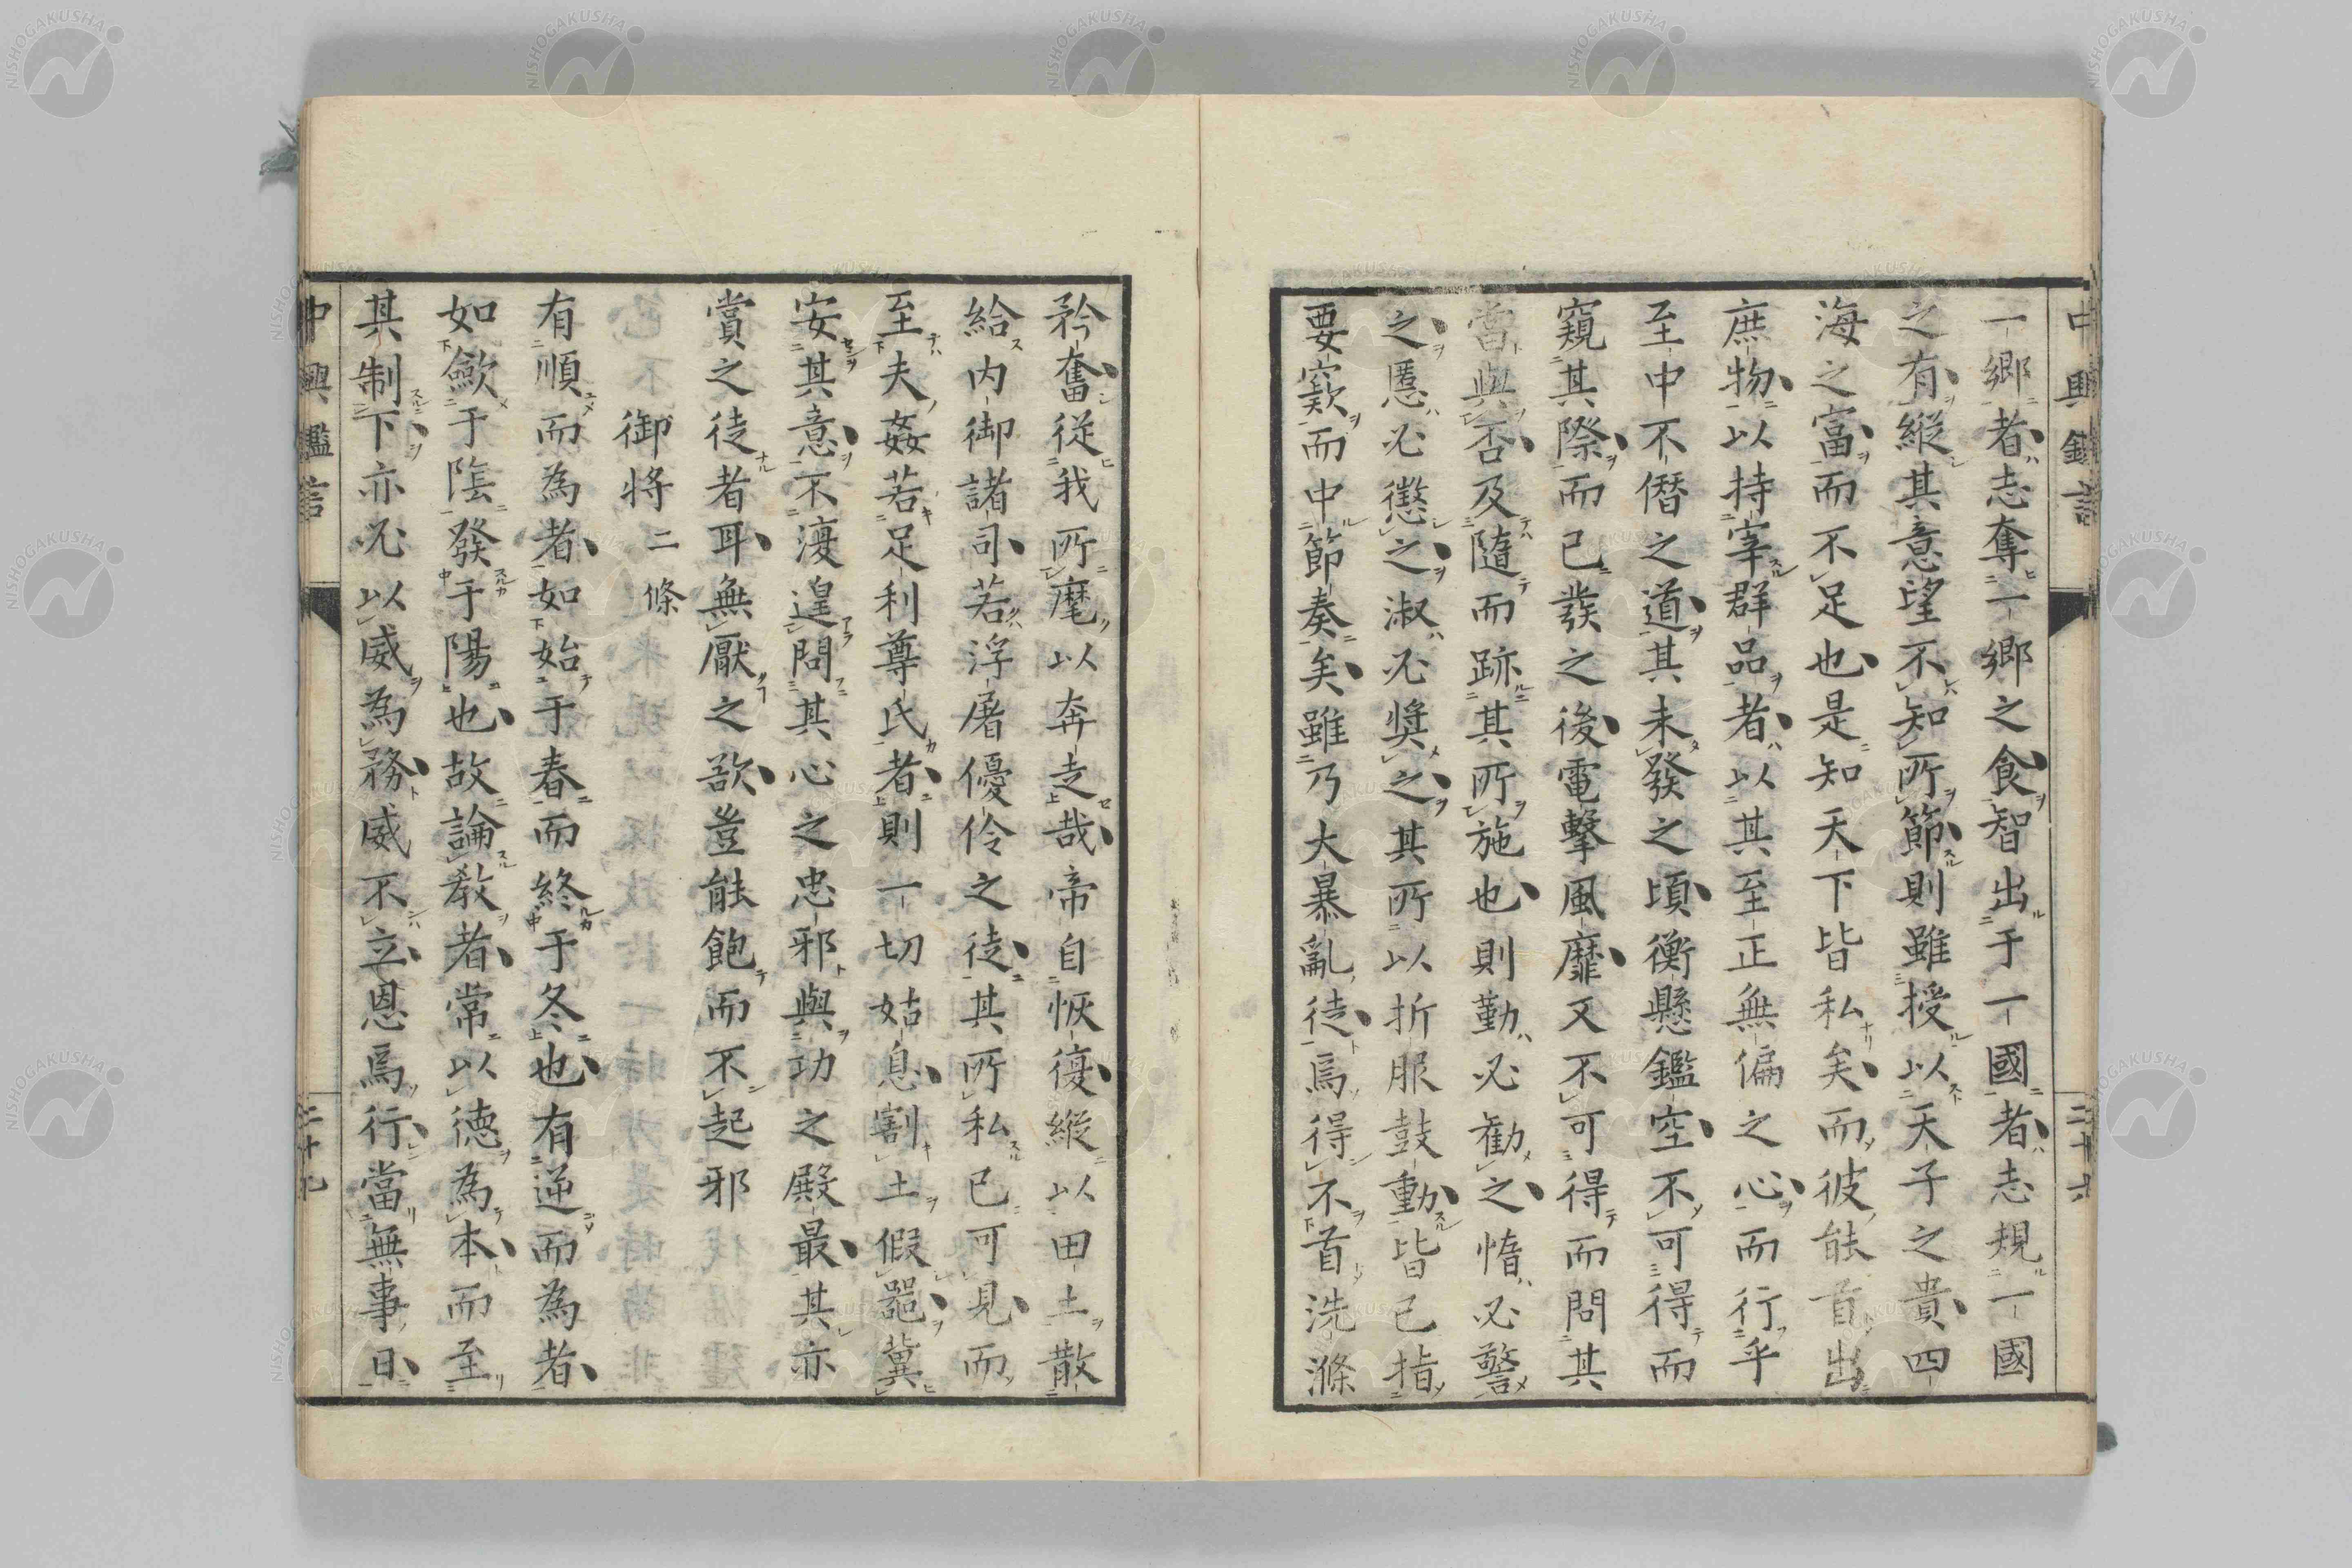 一鄉者志奪一鄉之食智出于一國者志規一國
之有縱其意望不知所節則雖授以天子之貴四
海之富而不足也是知天下皆私矣而彼能首出
庶物以持宰群品者以其至正無偏之心而行乎
至中不僭之道其未發之頃衡懸鑑空不可得而
窺其際而已發之後電擊風靡又不可得而問其
當與否及隨而跡其所施也則勤必勸之惰必警
之慝必懲之淑必獎之其所以折服鼓動皆已指
要窾而中節奏矣雖乃大暴亂徒焉得不首洗滌
矜奮從我所麾以奔走哉帝自恢復縱以田土散
給內御諸司若浮屠優伶之徒其所私已可見而
至夫姦若足利尊氏者則一切姑息割土假器冀
安其意不復遑問其心之忠邪與功之殿最其亦
賞之徒者耳無厭之欲豈能飽而不起邪
御將 二條
有順而為者如始于春而終于冬也有逆而為者
如歛于陰發于陽也故論教者常以德為本而至
其制下亦必以威為務威不立恩焉行當無事日
中興鑑言
二十九